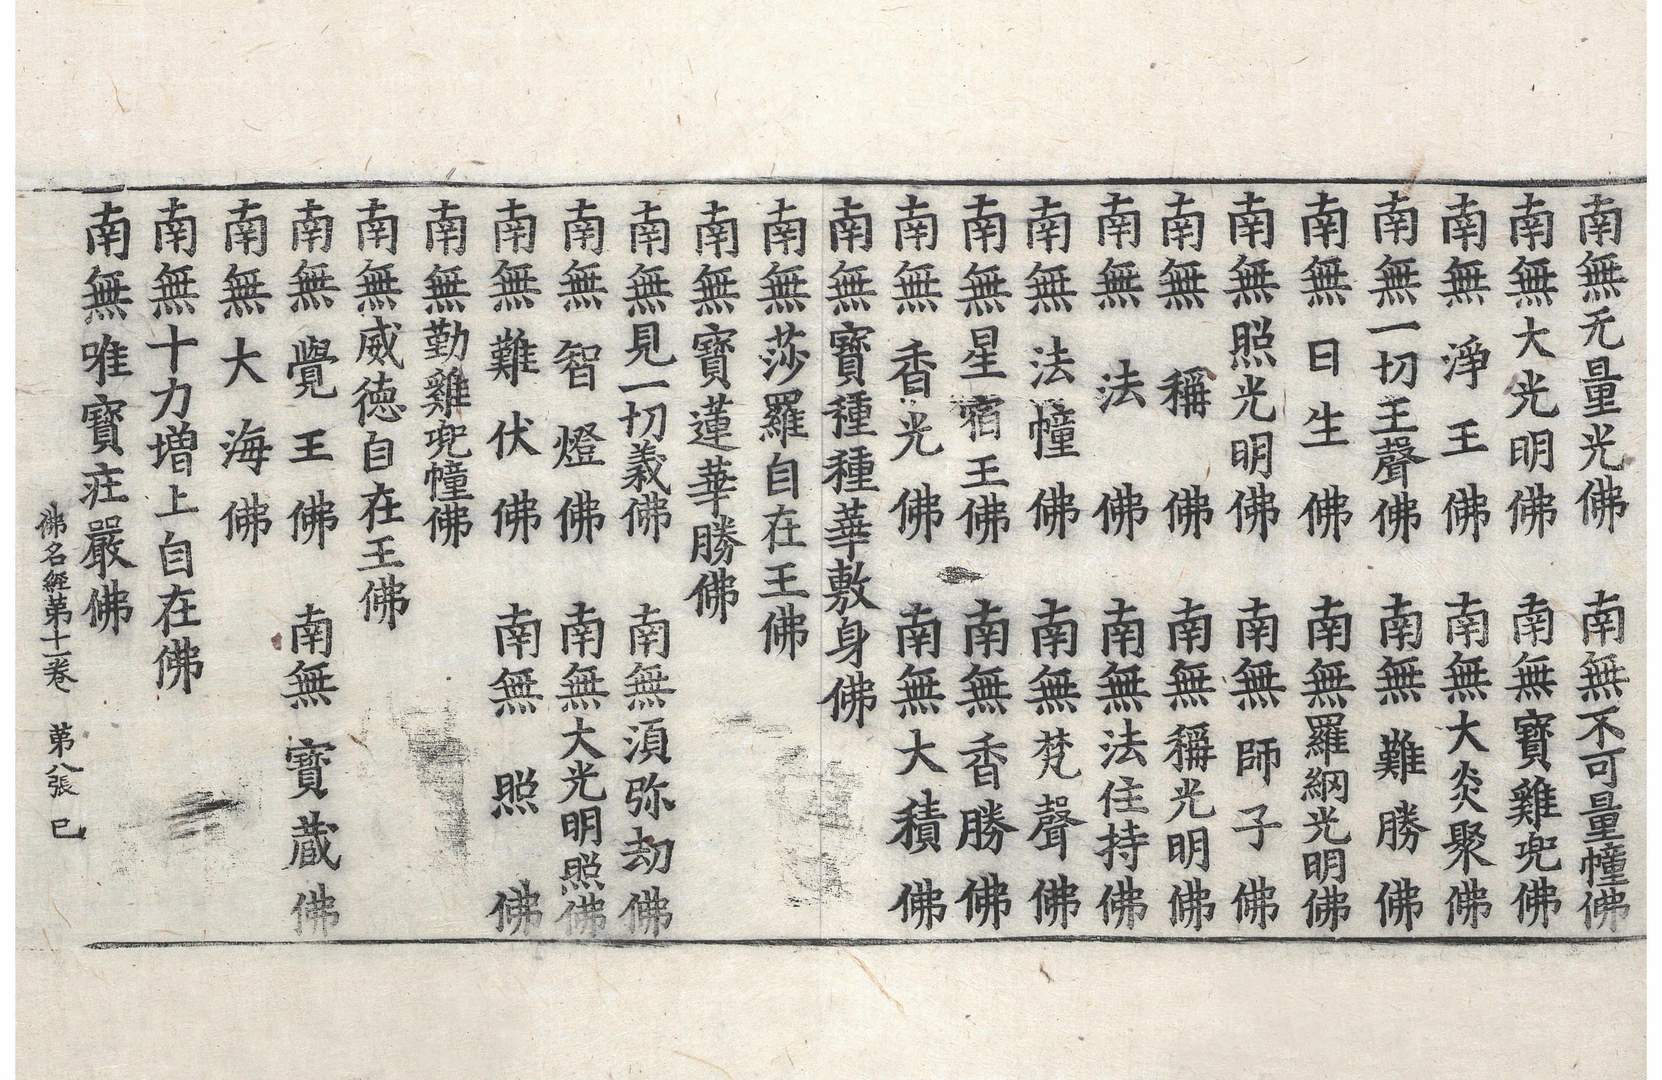 南無无量光佛 南無不可量幢佛
南無大光明佛 南無寶雞兜佛
南無淨王佛 南無大炎聚佛
南無一切王聲佛 南無難勝佛
南無日生佛 南無羅網光明佛
南無照光明佛 南無師子佛
南無稱佛 南無稱光明佛
南無法佛 南無法住持佛
南無法幢佛 南無梵聲佛
南無星宿王佛 南無香勝佛
南無香光佛 南無大積佛
南無寶種種華敷身佛
南無莎羅自在王佛
南無寶蓮華勝佛
南無見一切義佛 南無須弥劫佛
南無智燈佛 南無大光明照佛
南無難伏佛 南無照佛
南無勤雞兜幢佛
南無威德自在王佛
南無覺王佛 南無寶蔵佛
南無大海佛
南無十力增上自在佛
南無唯寶莊嚴佛
佛名經第十一卷 第八張 巳